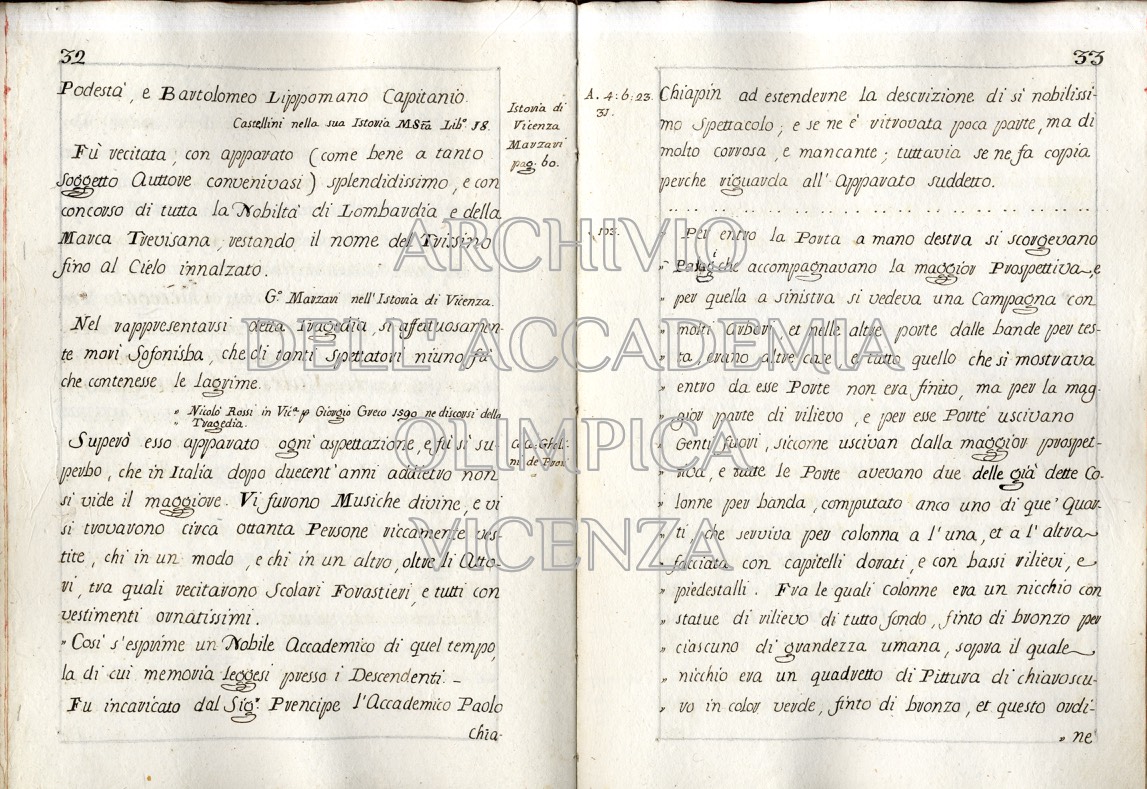 32
Podestà, e Bartolomeo Lippomano Capitanio.
Castellini nella sua Istoria M.Sta Lib.o 18.
Fù recitata, con apparato (come bene a tanto
soggetto Auttore convenivasi) splendidissimo, e con
concorso di tutta la Nobiltà di Lombardia e della
Marca Trevisana, restando il nome del Trissino
fino al Cielo innalzato.
G.o Marzari nell'Istoria di Vicenza.
Nel rappresentarsi detta Tragedia, si affettuosamen-
te morì Sofonisba, che di tanti spettatori niuno fù
che contenesse le lagrime.
" Nicolò Rossi in Vic.a Giorgio Greco 1590 ne discorsi della
" Tragedia.
Superò esso apparato ogni aspettazione, e fù sì su-
perbo, che in Italia dopo duecent'anni addietro non
si vide il maggiore. Vi furono Musiche divine, e vi
si trovarono circa ottanta Persone riccamente ves-
tite, chi in un modo, e chi in un altro, oltre li Atto-
ri, tra quali recitarono Scolari Forastieri, e tutti con
vestimenti ornatissimi.
" Così s'esprime un Nobile Accademico di quel tempo,
la di cui memoria leggesi presso i Descendenti. -
Fu incaricato dal Sig.r Prencipe l'Accademico Paolo
Chia-
Istoria di
Vicenza
Marzari
pag. 60.
33
A. 4: 6: 23.
31.
Chiapin ad estenderne la descrizione di sì nobilissi-
mo Spettacolo; e se ne è ritrovata poca parte, ma di
molto corrosa, e mancante; tuttavia se ne fa copia
perche riguarda all'Apparato suddetto.
" Per entro la Porta a mano destra si scorgevano
" che accompagnavano la maggior Prospettiva, e
" per quella a sinistra si vedeva una Campagna con
" molti Arbori, et nelle altre porte dalle bande per tes-
" ta, erano altre case e tutto quello che si mostrava
" entro da esse Porte non era finito, ma per la mag-
" gior parte di rilievo, e per esse Porte uscivano
" Genti fuori, siccome uscivan dalla maggior prospet-
" tiva, e tutte le Porte avevano due delle già dette Co-
" lonne per banda, computato anco uno di que' Quar-
" ti, che serviva per colonna a l'una, et a l'altra
" facciata con capitelli dorati, e con bassi rilievi, e
" piedestalli. Fra le quali colonne era un nicchio con
" statue di rilievo di tutto fondo, finto di bronzo per
" ciascuno di grandezza umana, sopra il quale
" nicchio era un quadretto di Pittura di chiaroscu-
" ro in color verde, finto di bronzo, et questo ordi-
" ne
ARCHIVIO
DELL'ACCADEMIA
OLIMPICA
VICENZA